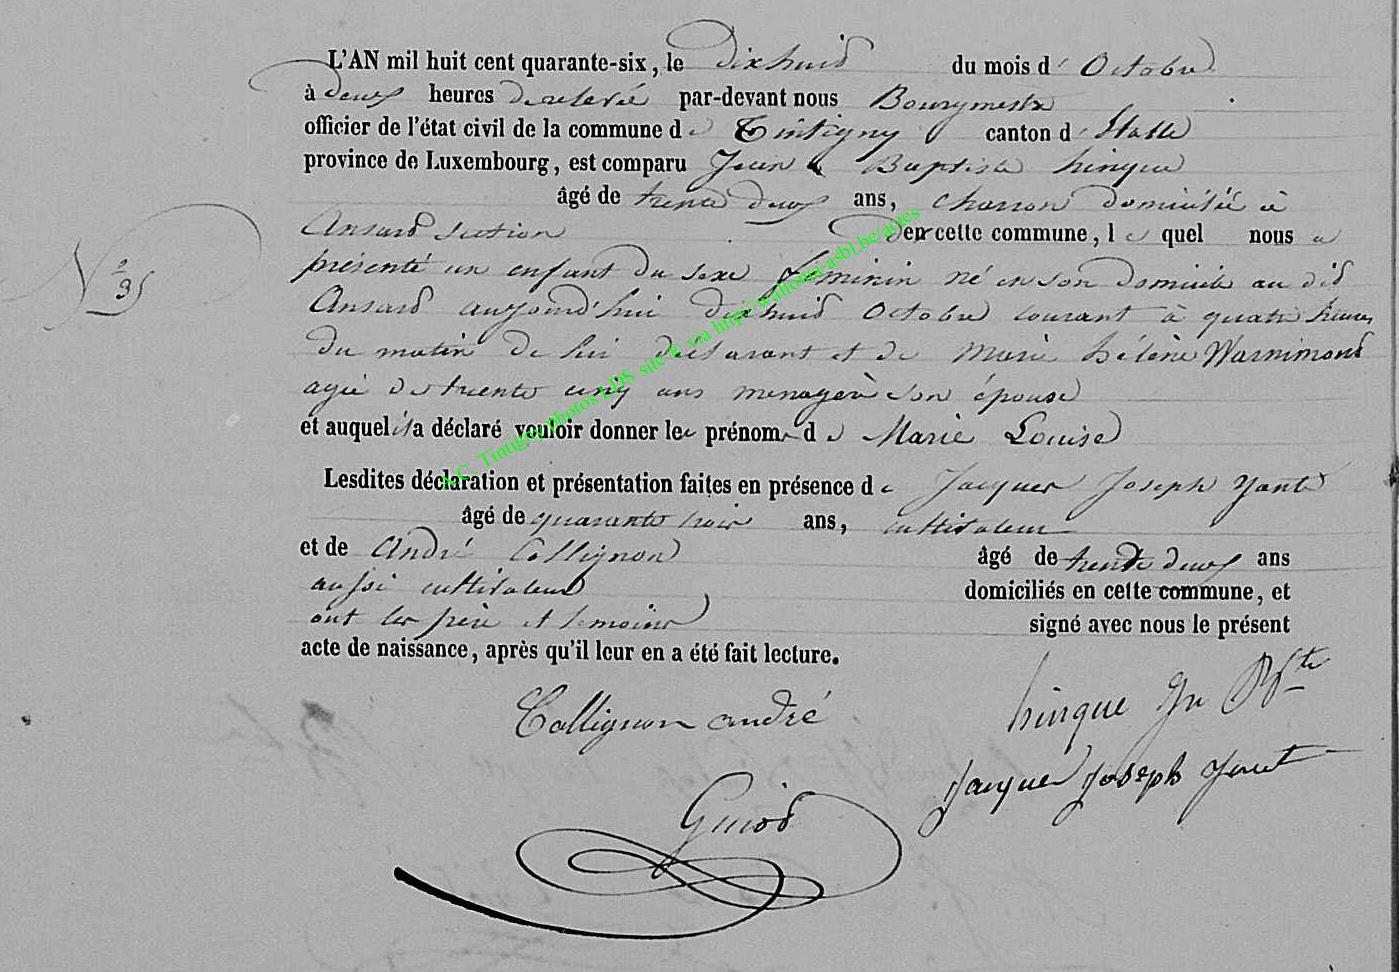 L'AN mil huit cent quarante-six, le dixhuit du mois d' Octobre
à deux heures de relevée par-devant nous Bourgmestre
officier de l'état civil de la commune de Tintigny canton d' Etalle
province de Luxembourg, est comparu Jean Baptiste hinque
âgé de trente deux ans, charron domicilié à
Ansard section de cette commune, lequel nous a
N° 35
présenté un enfant du sexe feminin né en son domicile au dit
Ansard aujourd'hui dixhuit Octobre courant à quatre heures
du matin de lui déclarant et de Marie hélène Warnimont
agée de trente cinq ans menagère son épouse
et auquel il a déclaré vouloir donner les prénoms de Marie Louise
Lesdites déclaration et présentation faites en présence de Jacques Joseph
âgé de quarante trois ans, cultivateur
et de André Collignon âgé de trente deux ans
aussi cultivateur domiciliés en cette commune, et
ont les père et temoins signé avec nous le présent
acte de naissance, après qu'il leur en a été fait lecture.
Collignon andré hinque Jn Bte
Jacques Joseph
A.C. Tintigny photos LDS site © via http://wallonia-asbl.be/actes